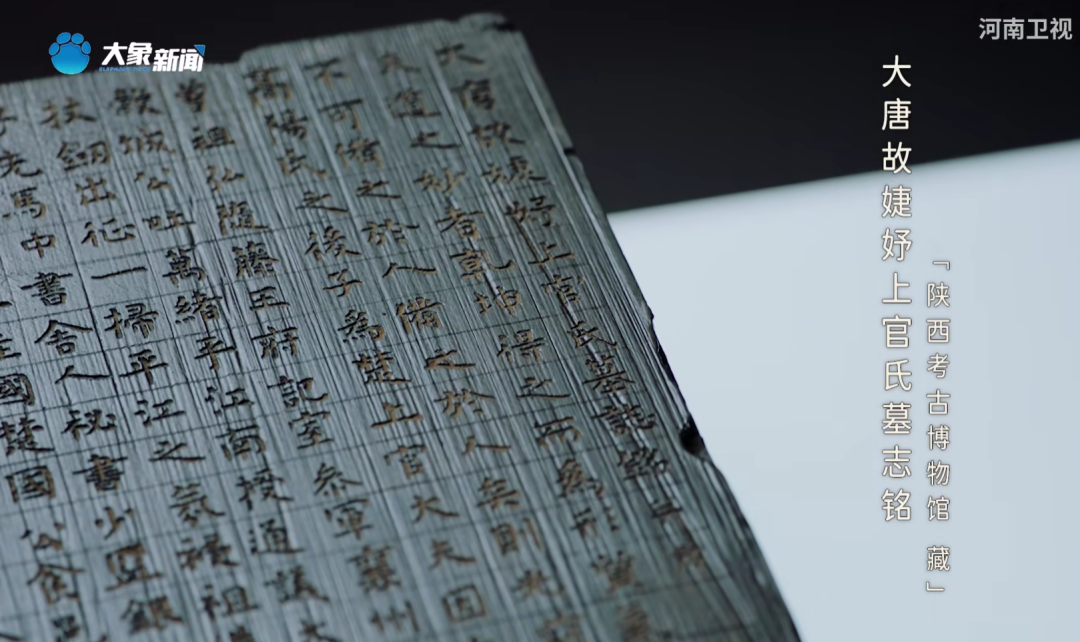 大象新闻
河南卫视
大唐故婕妤上官氏墓志铭
「陕西考古博物馆 藏」
大唐故婕妤上官氏墓誌銘
夫道之妙者乾坤得之而為形質
不可備之於人備之於人矣則光
高陽氏之後子為楚上官大夫因
曾祖弘隨藤王府記室參軍襄州
轂城公吐萬緒平江南授通議大
杖劒出征一掃平江之氛祲祖
洗馬中書舍人秘書少監銀
國楚國公食